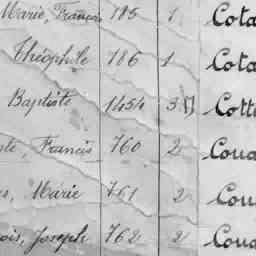 Marie, François 185 1 Cota
Théophile 186 1 Cota
Baptiste 1454 3 Cott
Francis 760 2 Coua
Marie 761 2 Cou
Joseph 762 2 Coua